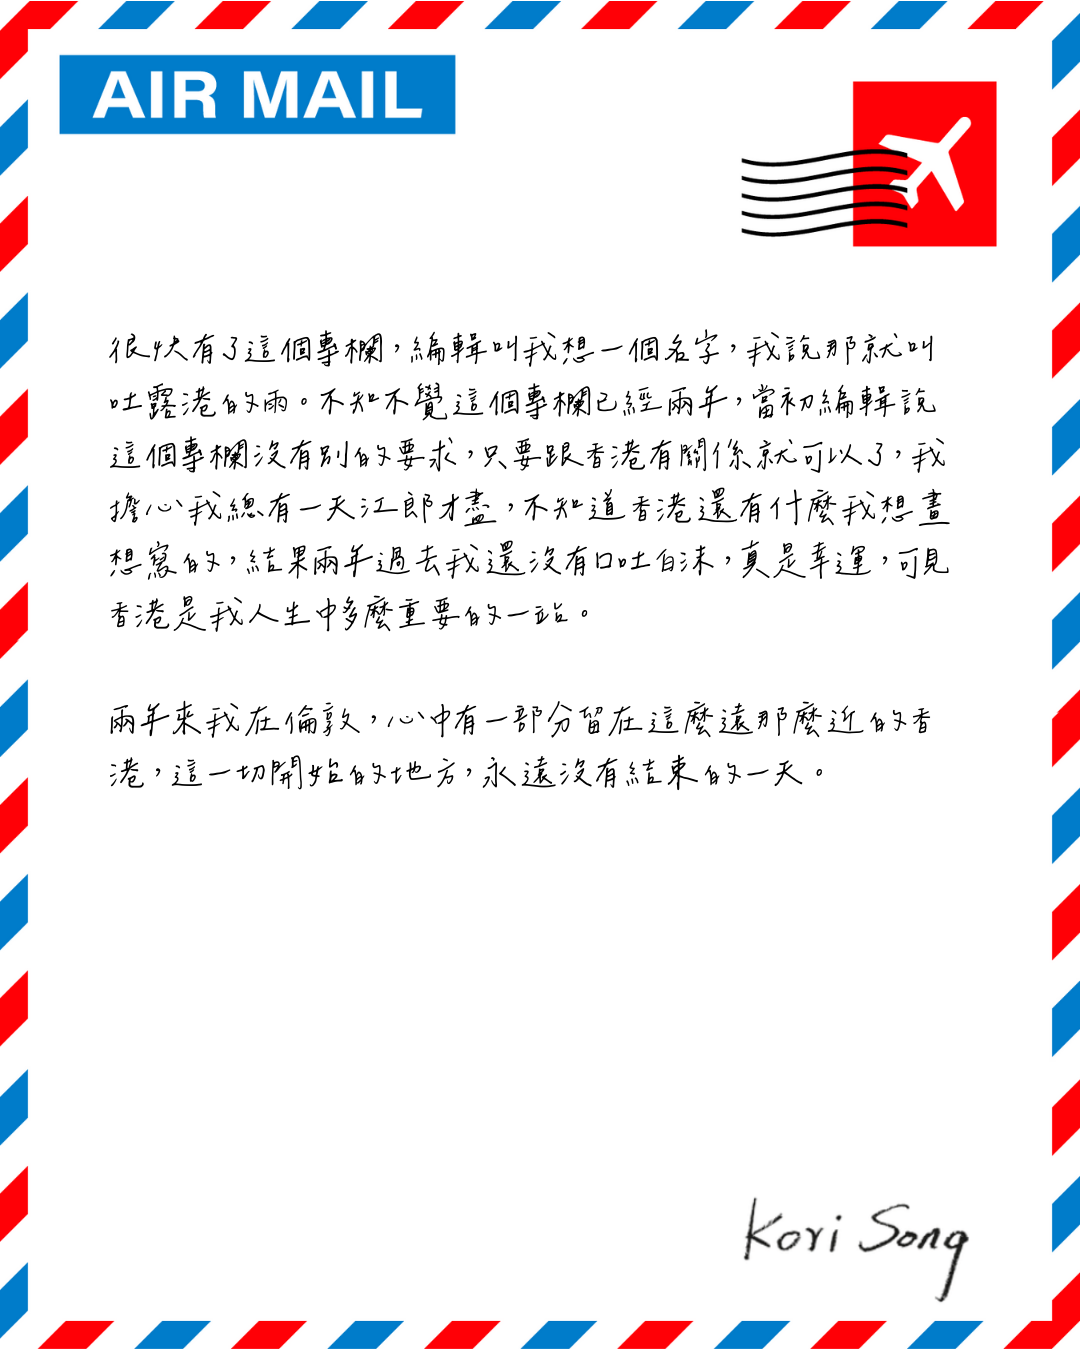 AIR MAIL
很快有了這個專欄，編輯叫我想一個名字，我說那就叫
吐露港的雨。不知不覺這個專欄已經兩年，當初編輯說
這個專欄沒有別的要求，只要跟香港有關係就可以了，我
擔心我總有一天江郎才盡，不知道香港還有什麼我想畫
想寫的，結果兩年過去我還沒有口吐白沫，真是幸運，可見
香港是我人生中多麼重要的一站。
兩年來我在倫敦，心中有一部分留在這麼遠那麼近的香
港，這一切開始的地方，永遠沒有結束的一天。
Kori Song